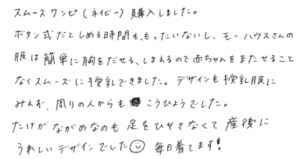 スムースワンピ(ネイビー)購入しました。
ボタン式だとしめる時間も、もったいないし、モーハウスさんの
服は簡単に胸をだせる、しまえるので赤ちゃんをまたせること
なくスムーズに授乳できました。デザインも授乳服に
みえず、周りの人からもこうひょうでした。
たけがながめなのも足をひやさなくて産後に
うれしいデザインでした☺ 毎日着てます!